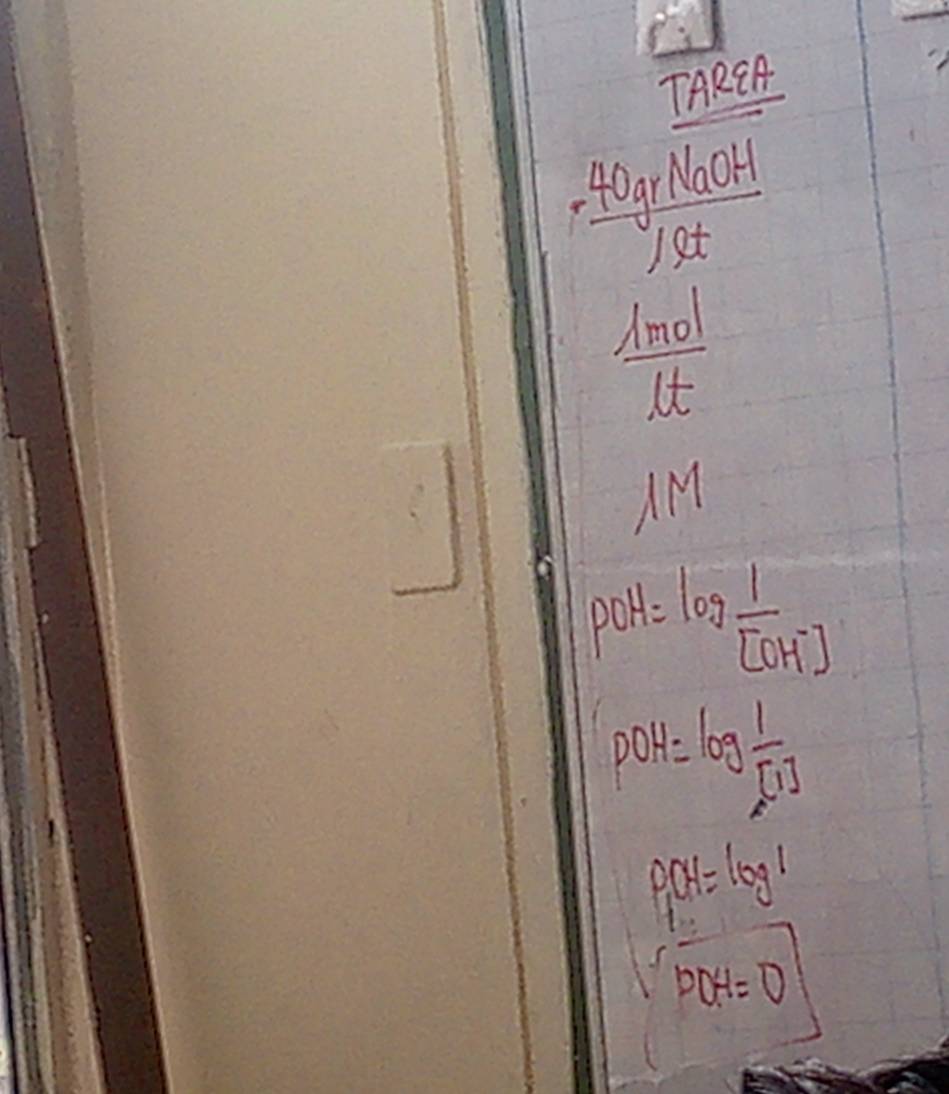 TAREA
40gr NaOH
1 lt
1mol
lt
1M
pOH= log 1
[OH⁻]
pOH= log 1
[1]
pOH= log 1
pOH= 0